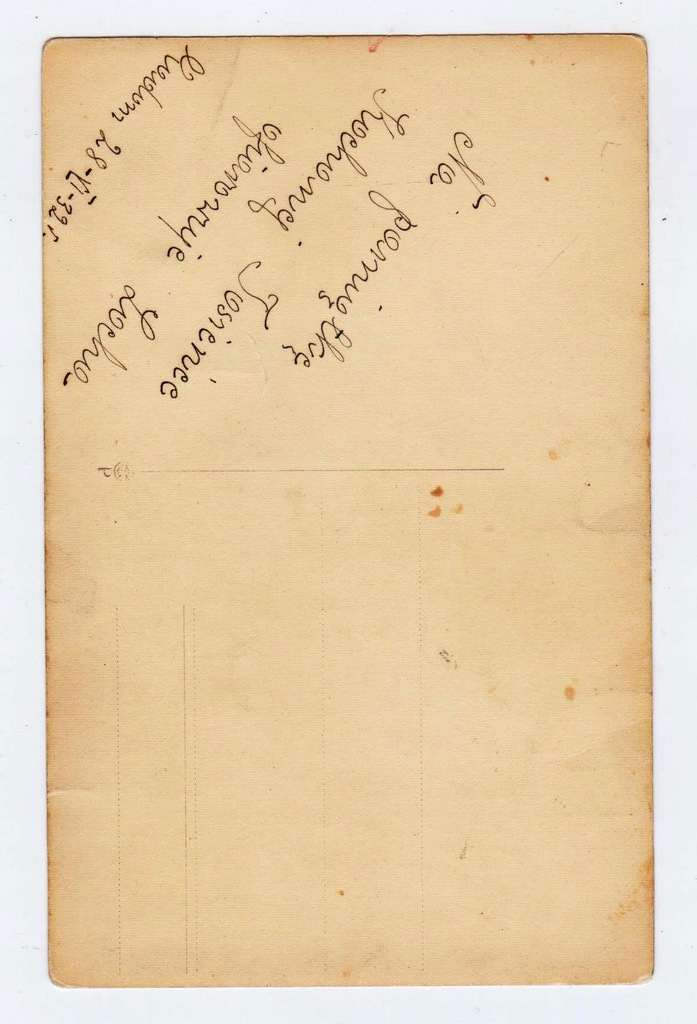 Na pamiątkę
Kochanej Tosieńce
ofiaruje Locha.
Radom 28-VI-39 r.
P